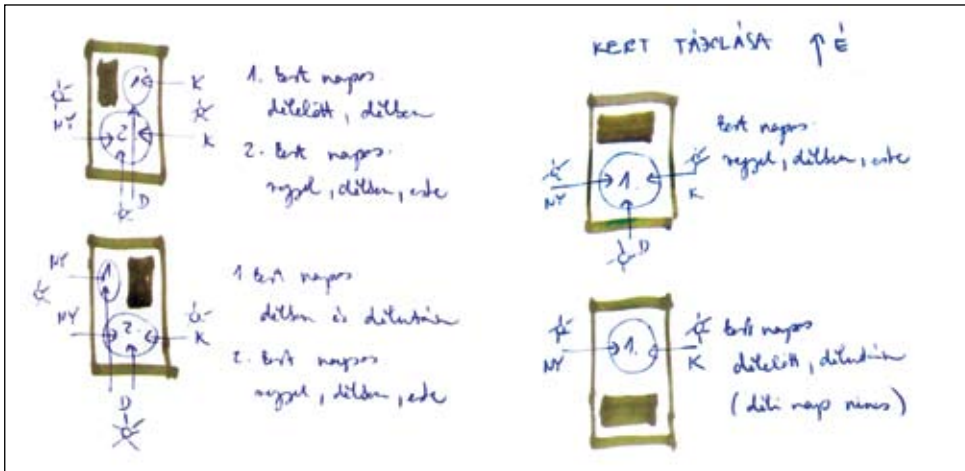 KERT TÁJOLÁSA ↑ É
1.
K
2.
NY
K
D
1. Kert napos
délelőtt, délben
2. Kert napos
reggel, délben, este
NY
1
NY
2.
K
D
1 Kert napos
délben és délután
2. Kert napos
reggel, délben, este
1.
NY
K
D
Kert napos
reggel, délben, este
1.
NY
K
Kert napos
délelőtt, délután
(déli nap nincs)